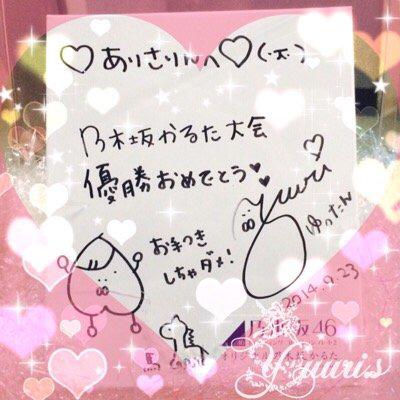 ♡ありさりんへ♡(·ㅈ·)
乃木坂かるた大会
優勝おめでとう♥♥
Yuuri
ゆったん
お手つき
しちゃダメ!
2014.9.23
乃木坂46
オリジナル乃木坂かるた
Yuuri.s